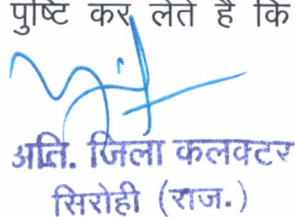 पुष्टि कर लेते है कि
अति. जिला कलक्टर
सिरोही (राज.)